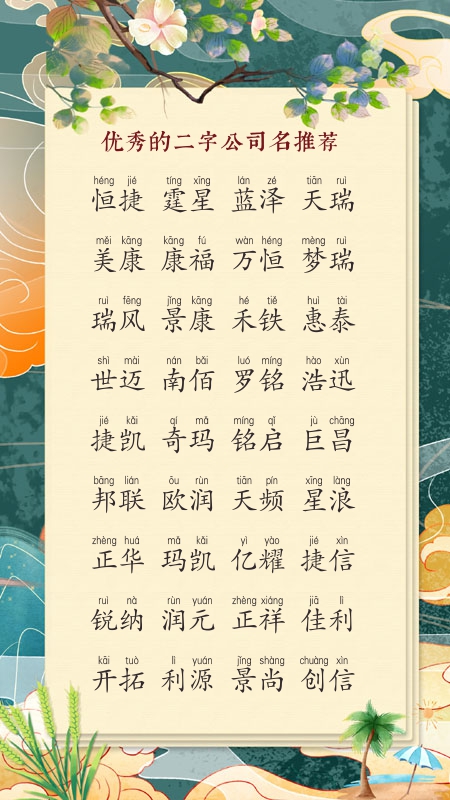 优秀的二字公司名推荐
héng jié tíng xīng lán zé tiān ruì
恒捷 霆星 蓝泽 天瑞
měi kāng kāng fú wàn héng mèng ruì
美康 康福 万恒 梦瑞
ruì fēng jǐng kāng hé tiě huì tài
瑞风 景康 禾铁 惠泰
shì mài nán bǎi luó míng hào xùn
世迈 南佰 罗铭 浩迅
jié kǎi qí mǎ míng qǐ jù chāng
捷凯 奇玛 铭启 巨昌
bāng lián ōu rùn tiān pín xīng làng
邦联 欧润 天频 星浪
zhèng huá mǎ kǎi yì yào jié xìn
正华 玛凯 亿耀 捷信
ruì nà rùn yuán zhèng xiáng jiā lì
锐纳 润元 正祥 佳利
kāi tuò lì yuán jǐng shàng chuàng xìn
开拓 利源 景尚 创信